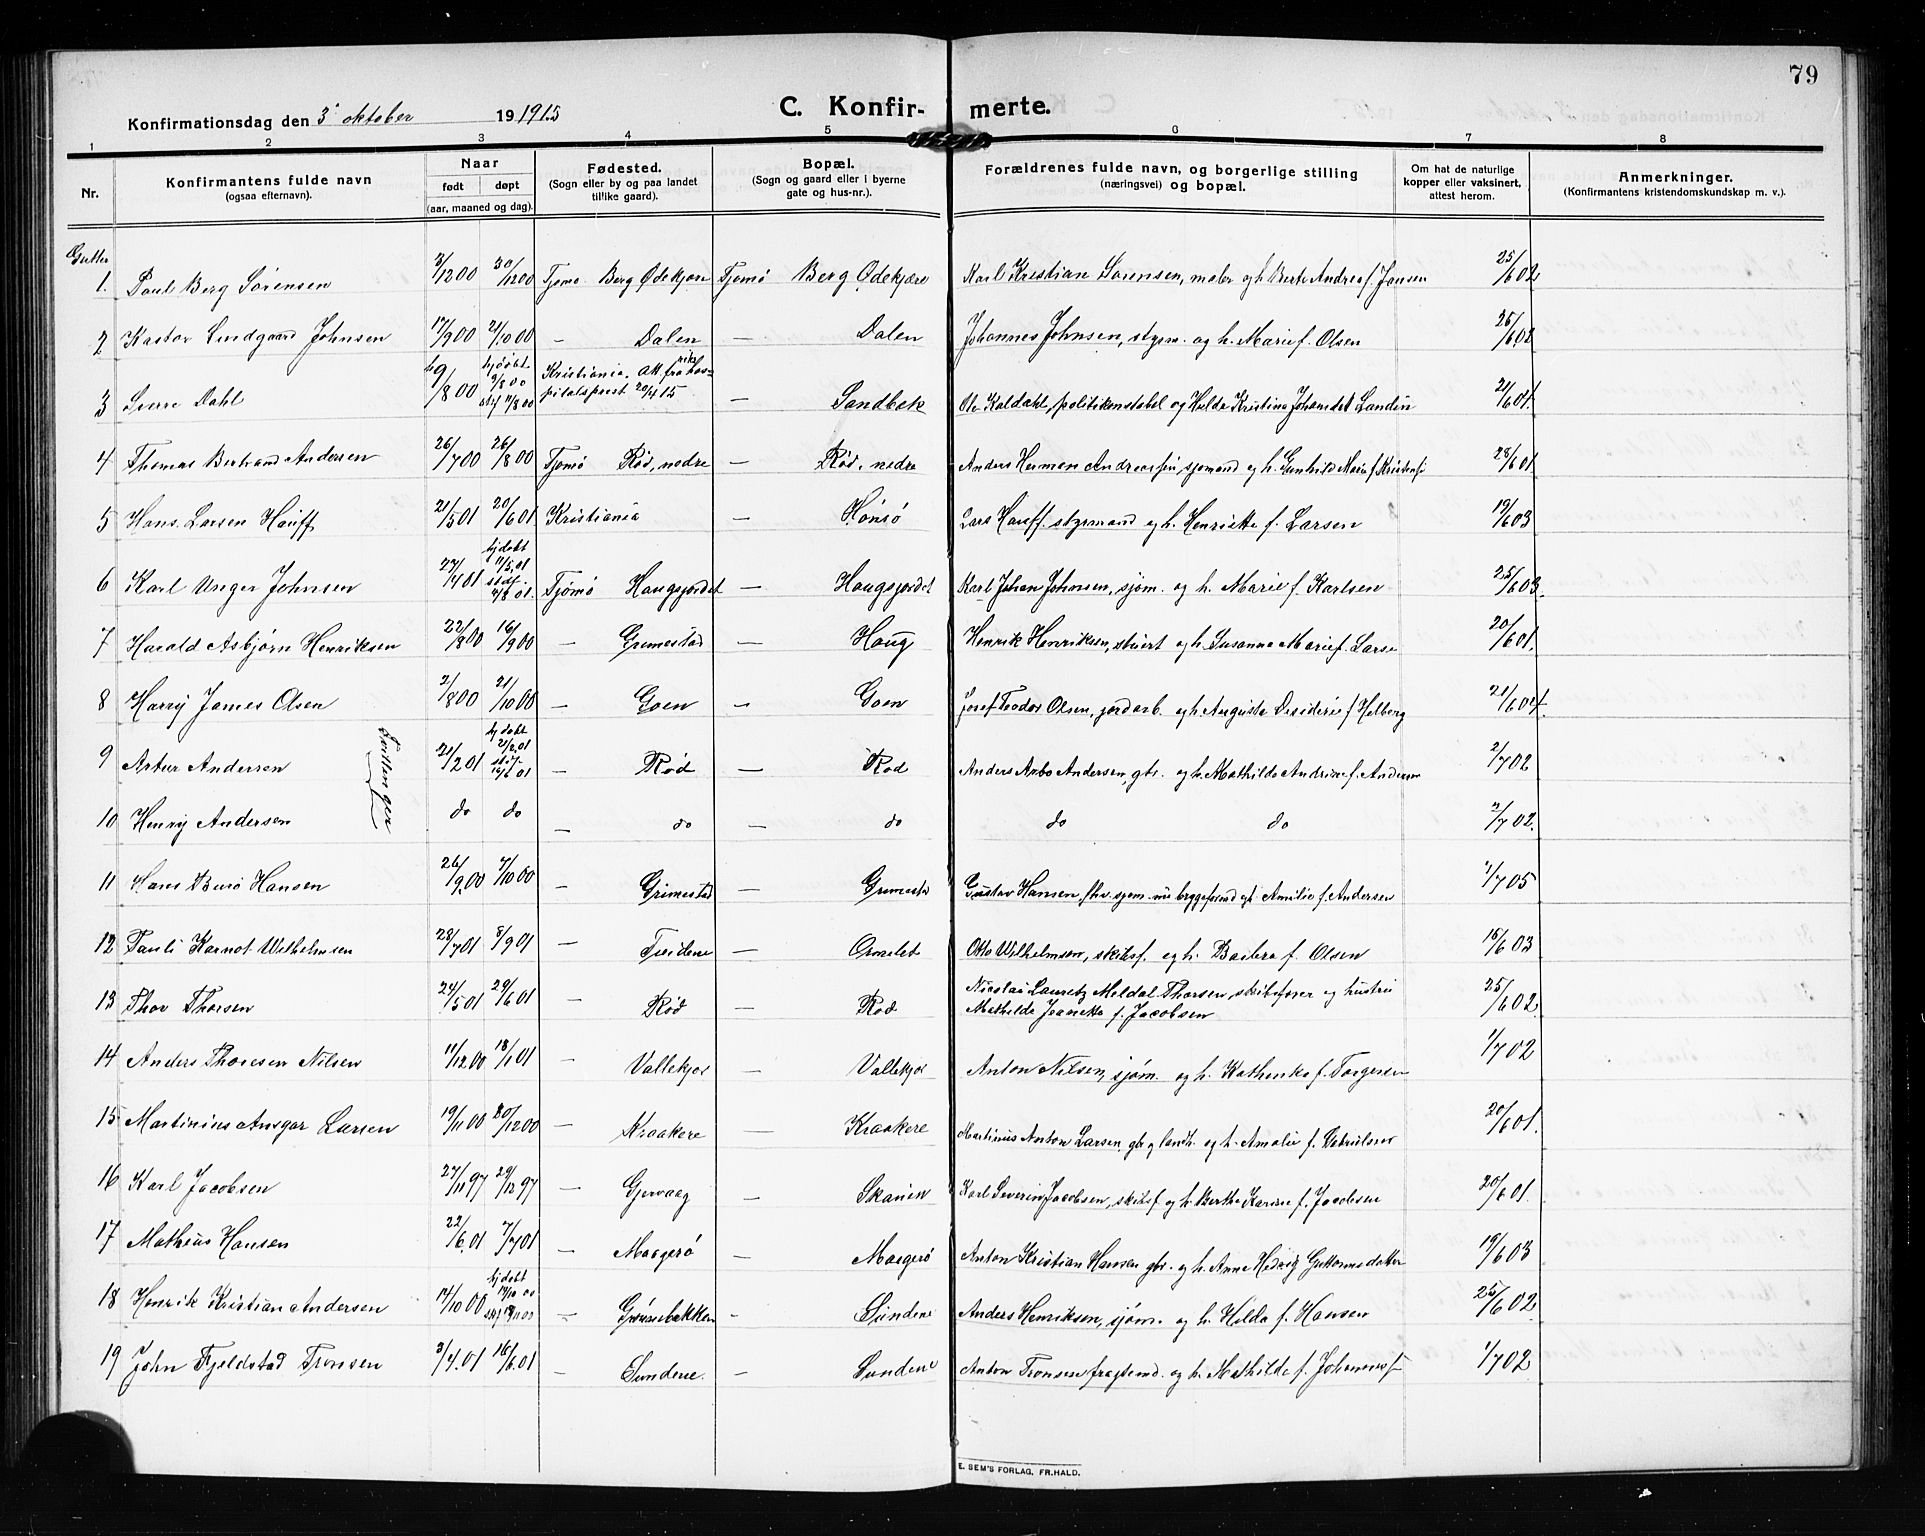 79
Konfirmationsdag den 3' oktober 19 1915
C. Konfir- merte.
1 2 3 4 5 6 7 8
Nr.
Konfirmantens fulde navn
(ogsaa efternavn).
Naar
født døpt
(aar, maaned og dag).
Fødested.
(Sogn eller by og paa landet
tillike gaard).
Bopæl.
(Sogn og gaard eller i byerne
gate og hus-nr.).
Forældrenes fulde navn, og borgerlige stilling
(næringsvei) og bopæl.
Om hat de naturlige
kopper eller vaksinert,
attest herom.
Anmerkninger.
(Konfirmantens kristendomskundskap m. v.).
Gutter
1. Paul Berg Sørensen 3/12 00 30/12 00 Tjømø Berg Ødekjære Tjømø Berg Ødekjære Karl Kristian Sørensen, maler og h. Berte Andrea f. Jansen 25/6 02
2 Kastor Lindgaard Johnsen 17/9 00 21/10 00 — Dalen — Dalen Johannes Johnsen, styrm. og h. Marie f. Olsen 25/6 02
3 Sverre Dahl 9/8 00 hjdøbt 9/8 00 11/8 00 Kristiania. Att. fra riks hos-
pitalsprest 20/4 15 — Sandbæk Ole Kaldahl, politikonstabel og Hulda Kristine Johansdt Landin 21/6 01.
4 Thomas Bertrand Andersen 26/7 00 26/8 00 Tjømø Rød, nedre — Rød, nedre Anders Herman Andreassen sjømand og h. Gunhild Marie f. Kristens 28/6 01
5 Hans Larsen Hauff 21/5 01 20/6 01 Kristiania — Hønsø Lars Hauff. styrmand og h. Henriette f. Larsen 19/6 03
6 Karl Unger Johnsen 27/4 01 hjdøbt 11/5.01 stadf. Tjømø Haugsjordet — Haugsjordet Karl Johan Johnsen, sjøm. og h. Marie f. Karlsen 25/6 03.
7 Harald Asbjørn Henriksen 22/8 00 16/9 00 — Grimestad — Haug Henrik Henriksen, stuert og h. Susanne Marie f. Larse 20/6 01.
8 Harry James Olsen 2/8 00 21/10 00 — Goen — Goen Josef Teodor Olsen, jordarb. og h. Augusta Desideria f. Helberg 21/6 04.
9 Artur Andersen 21/2 01 hjdøbt 21/2.01 stdf. — Rød — Rød Anders Arbo Andersen, gbr. og h. Mathilde Andrine f. Andersen 2/7 02
Tvillinger
10 Henry Andersen do do — do — do do do 2/7 02.
11 Hans Buro Hansen 26/9 00 7/10 00 — Grimestad — Grimestd Gustav Hansen, fhv. sjøm. nu bryggeformd og h. Amilie f. Andersen 1/7 05
12 Pauli Karnot Wilhelmsen 28/7 01 8/9 01 — Treidene — Ormelet Otto Wilhelmsen, skibsf. og h. Barbra f. Olsen 18/6 03
13 Thor Thorsen 24/5 01 29/6 01 — Rød — Rød Nicolai Lauretz Meldal Thorsen, skibsfører og hustru
Mathilde Jeanette f. Jacobsen 25/6 02.
14 Anders Thoresen Nilsen 11/12 00 18/1 01 — Vallekjær — Vallekjær Anton Nilsen, sjøm. og h. Kathinka f. Torgersen 1/7 02
15 Martinius Ansgar Larsen 19/11 00 30/12 00 — Kraakere — Kraakere Martinius Anton Larsen, gbr og landh. og h. Amalie f. 20/6 01.
16 Karl Jacobsen 27/11 97 29/12 97 — Gjervaag — Skauen Karl Severin Jacobsen, skibsf. og h. Berthe Karine f. Jacobsen 20/6 01.
17 Mathias Hansen 22/6.01 7/7 01 — Maagerø — Maagerø Anton Kristian Hansen gbr. og h. Anne Hedvig Guttormsdatter 19/6 03
18 Henrik Kristian Andersen 14/10 00 hjdøbt 14/10 00 — Grønnebakken — Sundene Anders Henriksen, sjøm. og h. Hilda f. Hansen 25/6 02
19 John Fjeldstad Tronsen 3/4.01 16/6.01 — Sundene. — Sundene Anton Tronsen fragtemd. og h. Mathilde f. Johannesf 1/7 02
E. SEM'S FORLAG, FR.HALD.